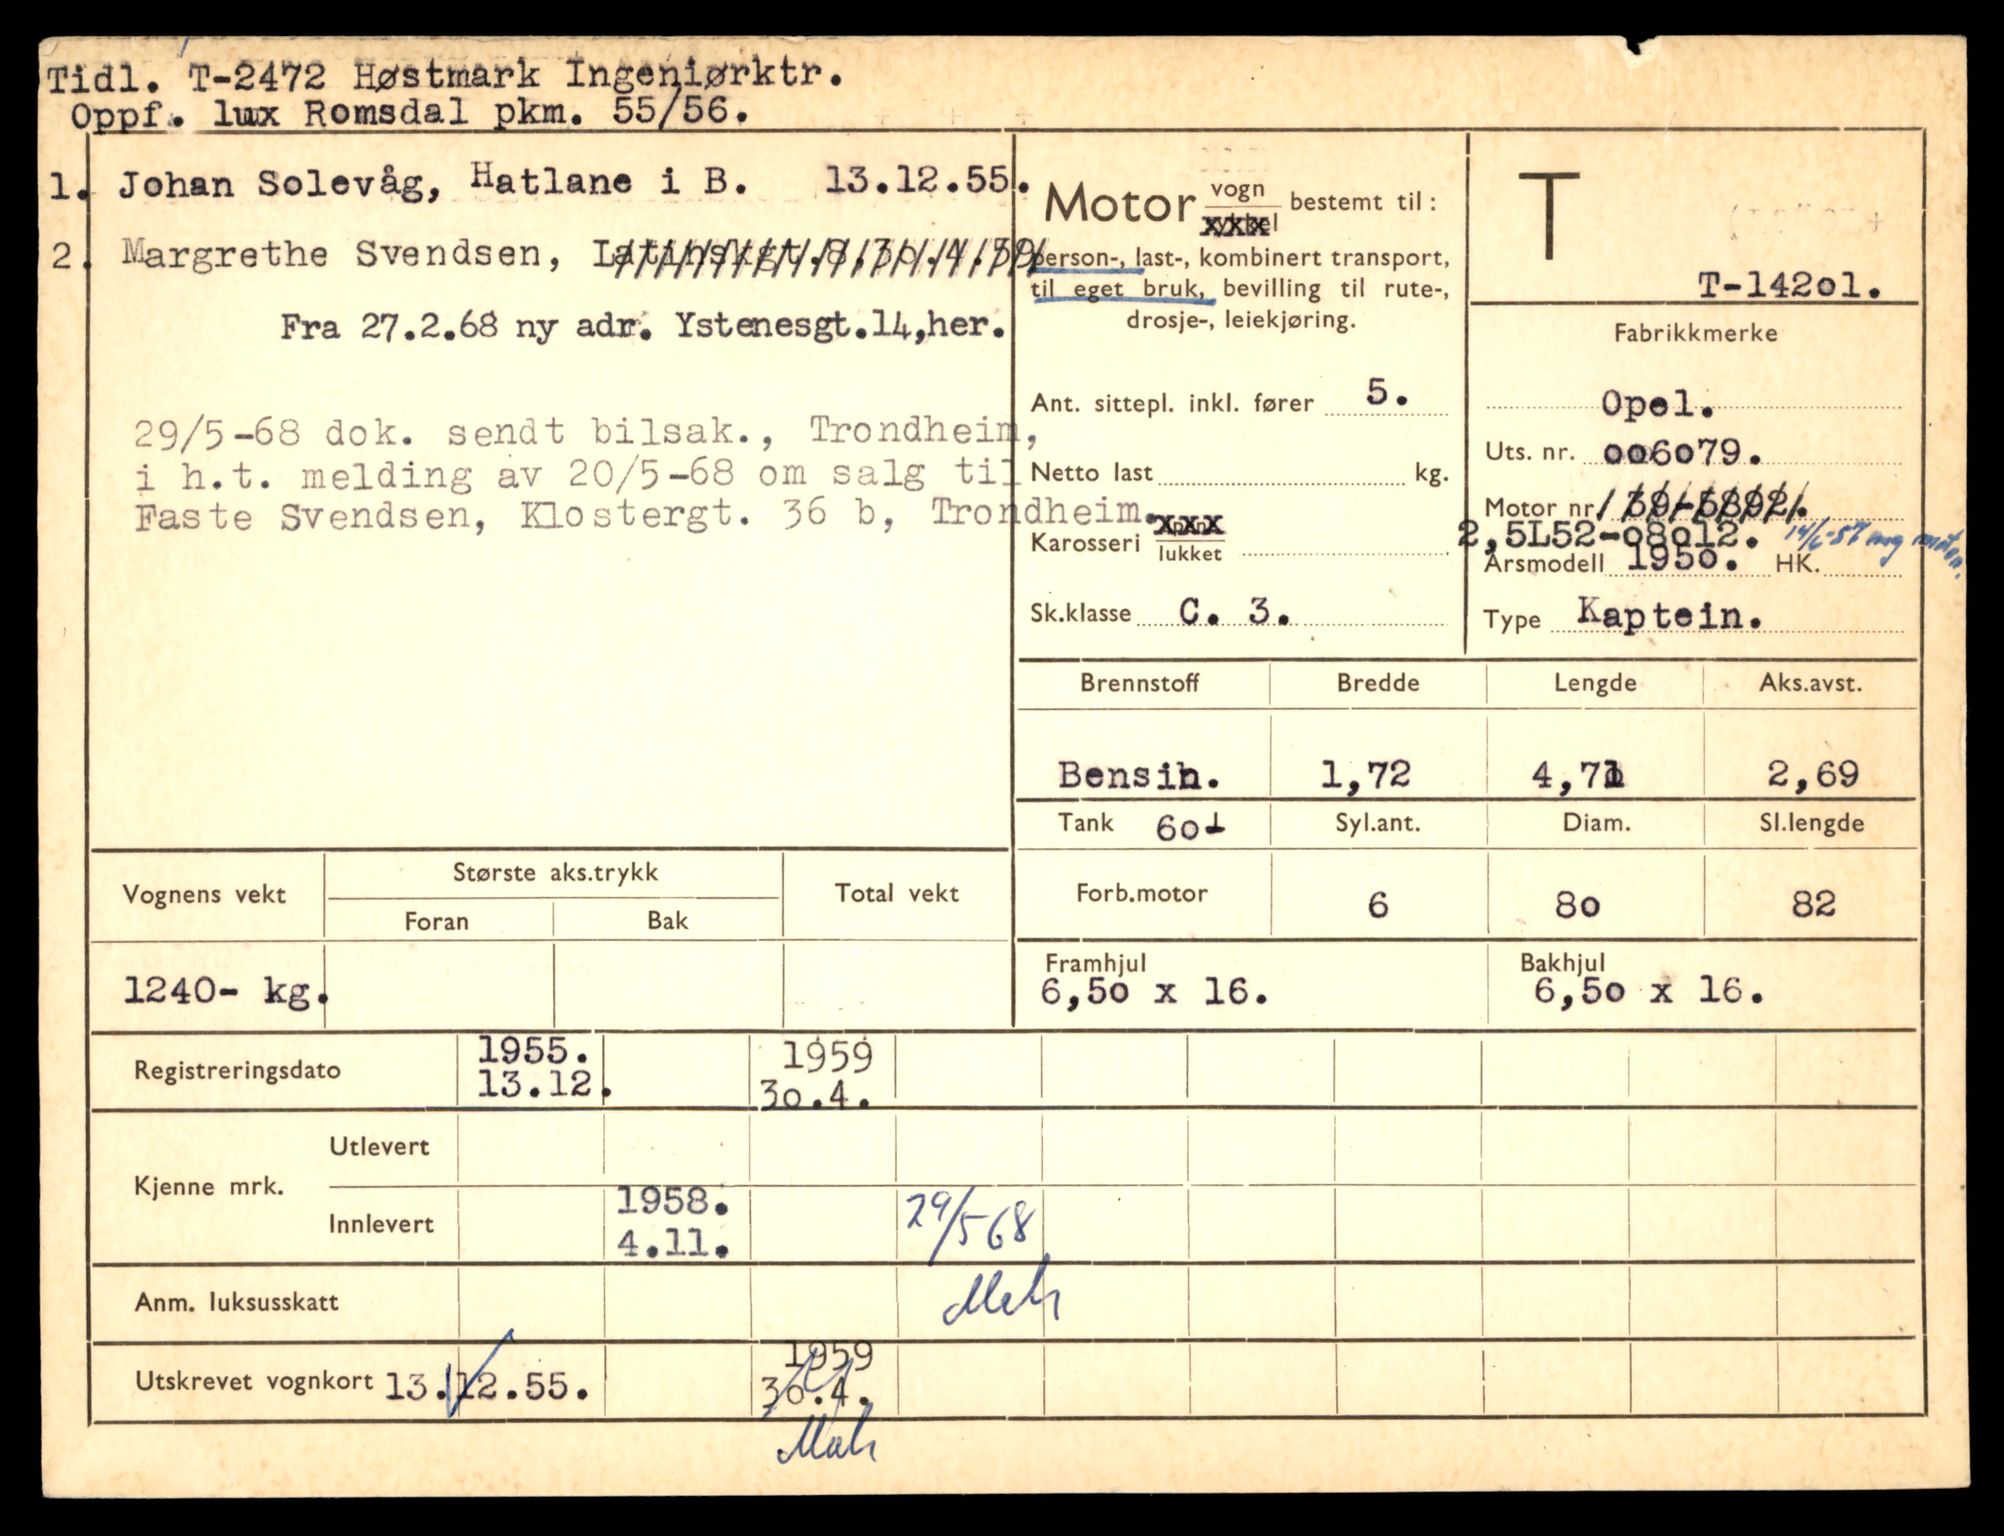 Tidl. T-2472 Høstmark Ingeniørktr.
Oppf. lux Romsdal pkm. 55/56.
1. Johan Solevåg, Hatlane i B. 13.12.55.
2. Margrethe Svendsen, Latinskgt.8,30.4.59
Fra 27.2.68 ny adr. Ystenesgt.14,her.
29/5-68 dok. sendt bilsak., Trondheim,
i h.t. melding av 20/5-68 om salg til
Faste Svendsen, Klostergt. 36 b, Trondheim.
Motor vogn bestemt til:
person-, last-, kombinert transport,
til eget bruk, bevilling til rute-,
drosje-, leiekjøring.
Ant. sittepl. inkl. fører 5.
Netto last kg.
Karosseri lukket
Sk.klasse C. 3.
T
T-142o1.
Fabrikkmerke
Opel.
Uts. nr. oo6o79.
Motor nr. 39-5892.
2,5L52-o8o12. 14/6-57
Årsmodell 195o. HK.
Type Kaptein.
Brennstoff Bredde Lengde Aks.avst.
Bensin. 1,72 4,71 2,69
Tank 6o l Syl.ant. Diam. Sl.lengde
Forb.motor 6 8o 82
Framhjul Bakhjul
6,5o x 16. 6,5o x 16.
Vognens vekt Største aks.trykk Total vekt
Foran Bak
1240- kg.
Registreringsdato 1955. 1959
13.12. 3o.4.
Kjenne mrk. Utlevert
Innlevert 1958. 29/5 68
4.11.
Anm. luksusskatt
Utskrevet vognkort 13.12.55. 1959
3o.4.